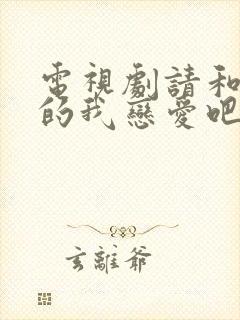 電視劇請和
的我戀愛吧
玄離爺